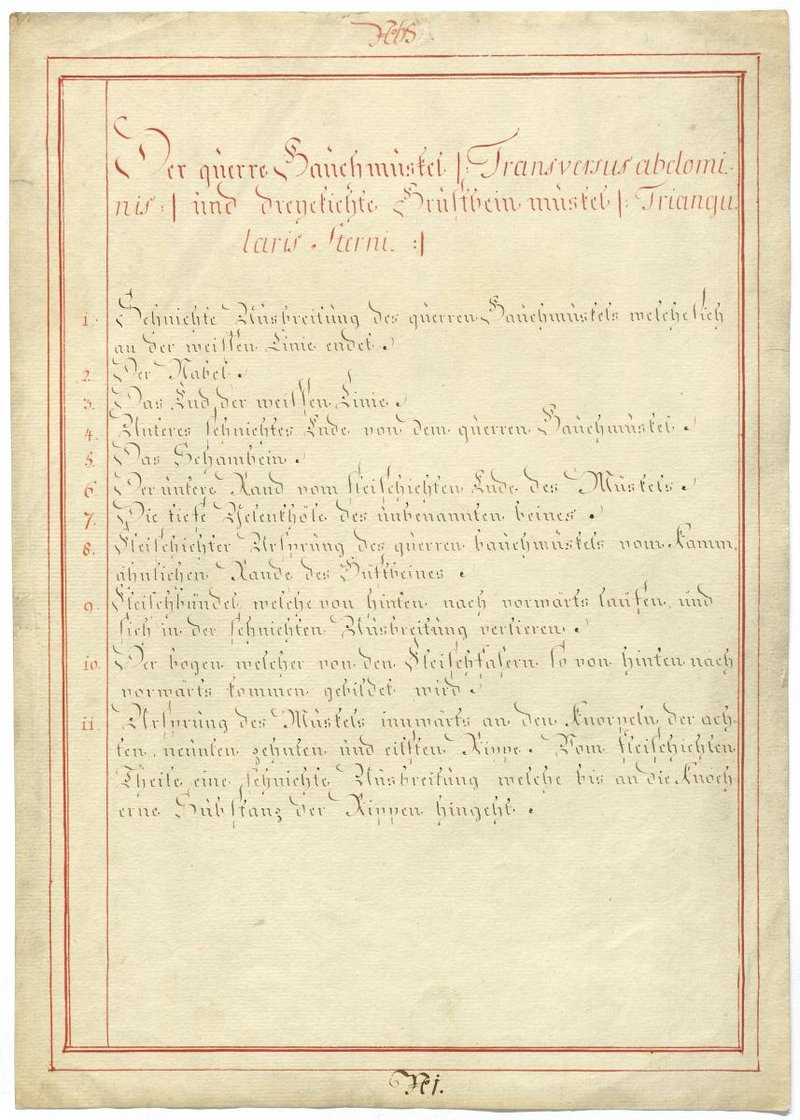 Der querre Bauchmuskel |: Transversus abdomi-
nis :| und dreyekichte Brustbein muskel |: Triangu-
laris Sterni. :|
1. Sehnichte Ausbreitung des querren Bauchmuskels welche sich
an der weissen Linie endet.
2. Der Nabel.
3. Das End der weissen Linie.
4. Unteres sehnichtes Ende von dem querren Bauchmuskel.
5. Das Schambein.
6. Der untere Rand vom fleischichten Ende des Muskels.
7. Die tiefe Gelenkhöle des unbenannten beines.
8. Fleischichter Ursprung des querren bauchmuskels vom Kamm,
ähnlichen Rande des Hüftbeines.
9. Fleischbündel welche von hinten nach vorwärts laufen, und
sich in der sehnichten Ausbreitung verlieren.
10. Der bogen welcher von den Fleischfasern so von hinten nach
vorwärts kommen gebildet wird.
11. Ursprung des Muskels innwärts an den Knorpeln der ach-
ten, neunten zehnten und eilften Rippe. Vom fleischichten
Theile eine sehnichte Ausbreitung welche bis an die Knöch
erne Substanz der Rippen hingeht.